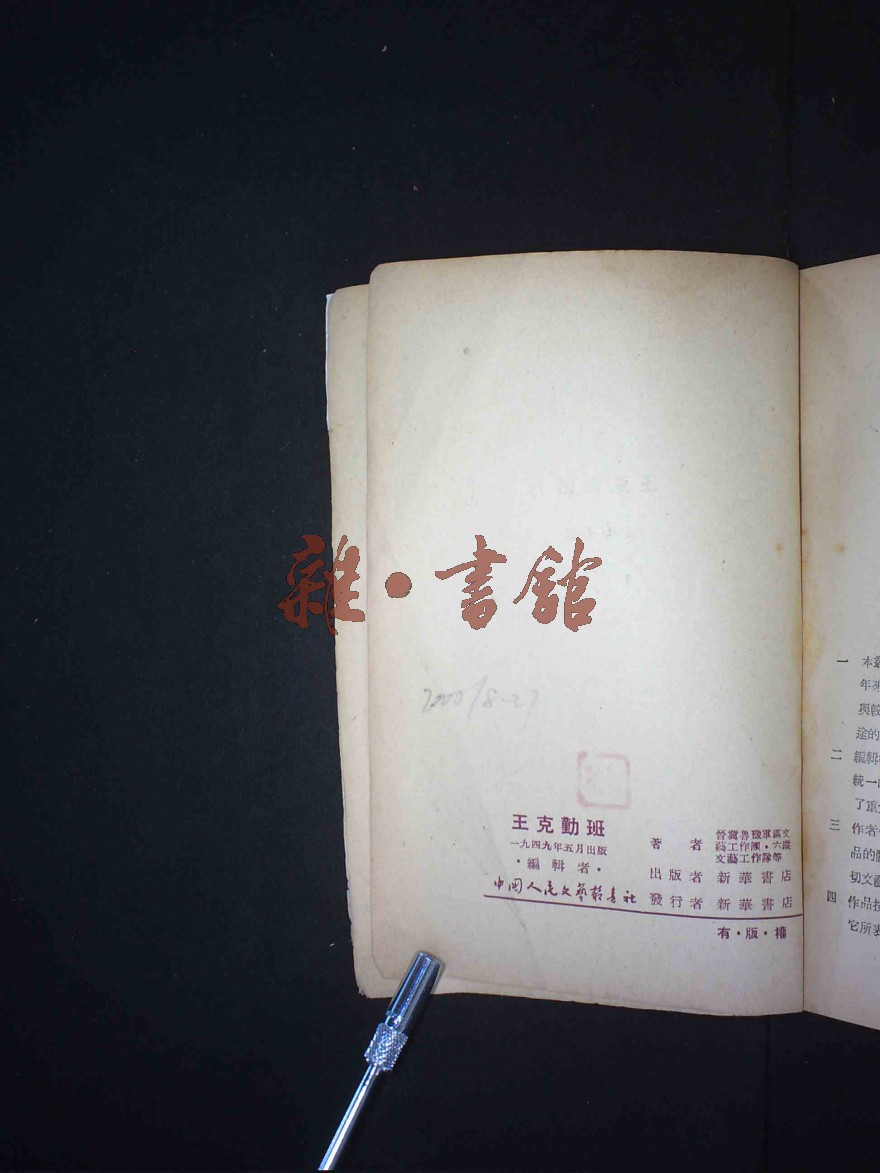 雜·書館
2000/8-27
王克勤班
一九四九年五月出版
·編輯者·
中國人民文藝叢書社
著者 晉冀魯豫軍區文
藝工作團·六縱
文藝工作隊等
出版者 新華書店
發行者 新華書店
有·版·權
一 本
年來
與較
途的
二 編輯
統一
了重
三 作者
品的
切文藝
四 作品按
它所表